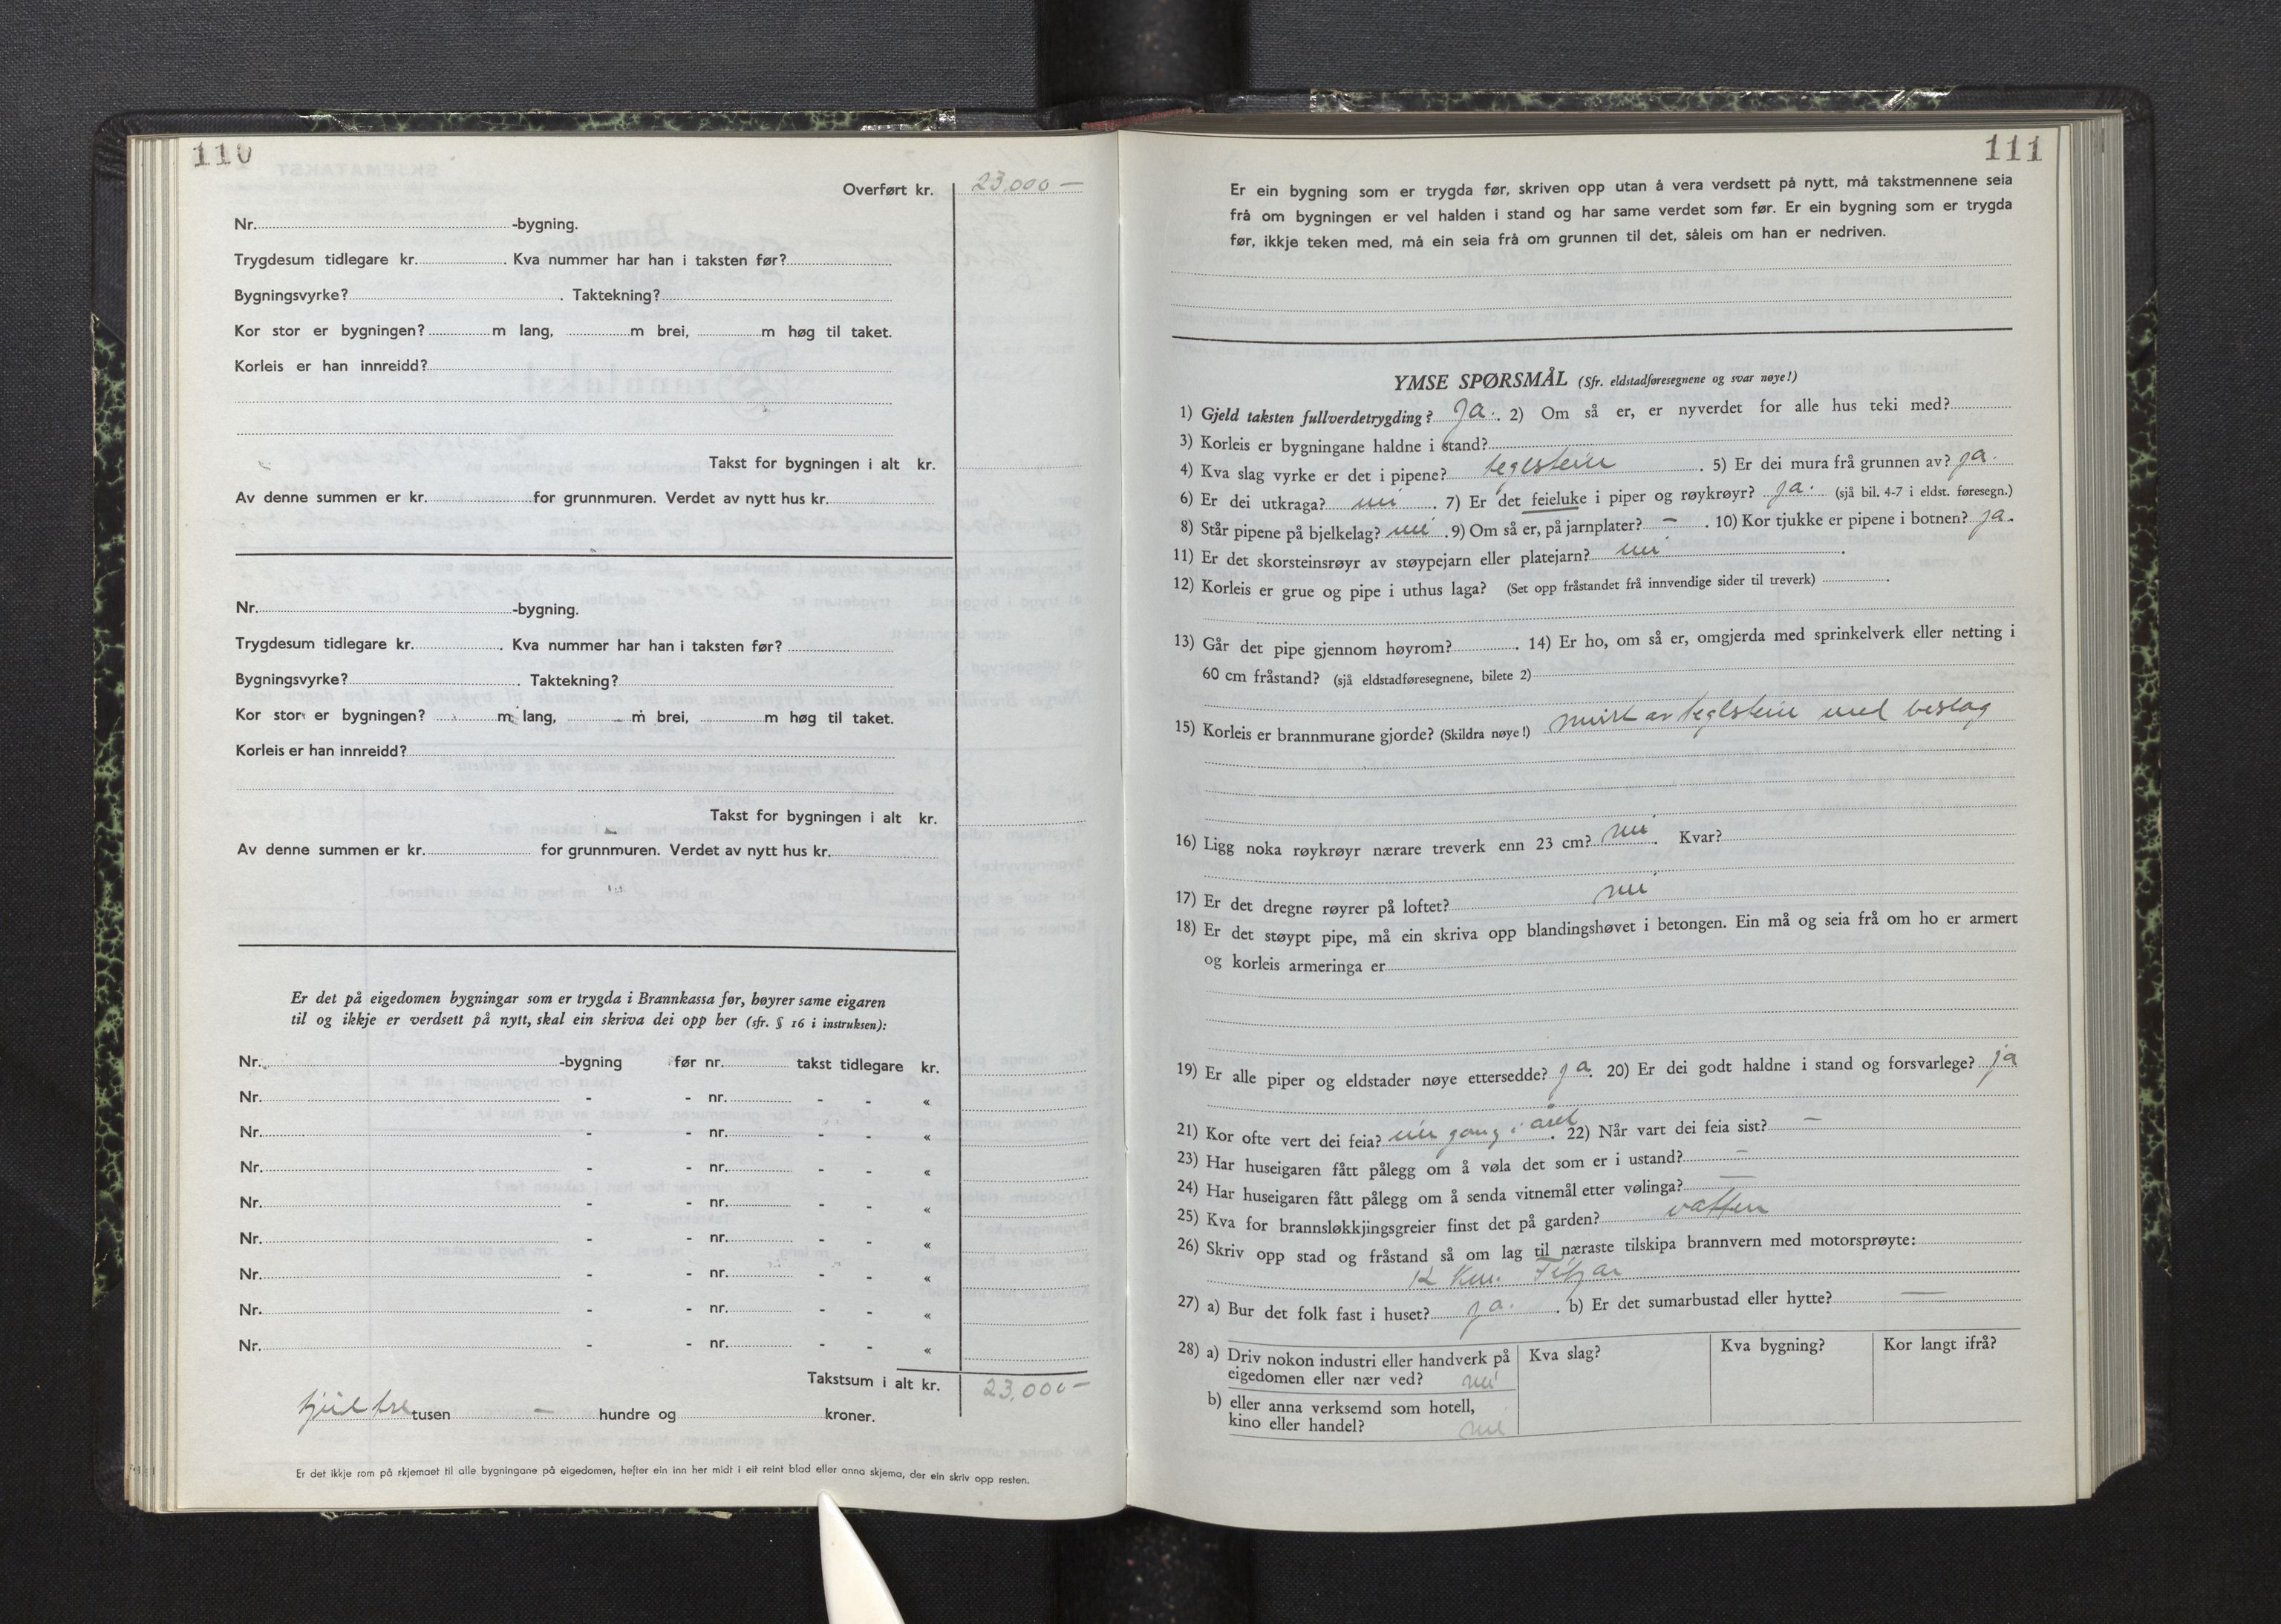 110
Overført kr. 23.000 —
Nr. -bygning.
Trygdesum tidlegare kr. . Kva nummer har han i taksten før?
Bygningsvyrke? . Taktekning?
Kor stor er bygningen? m lang, m brei, m høg til taket.
Korleis er han innreidd?
Takst for bygningen i alt kr.
Av denne summen er kr. for grunnmuren. Verdet av nytt hus kr.
Nr. -bygning.
Trygdesum tidlegare kr. . Kva nummer har han i taksten før?
Bygningsvyrke? . Taktekning?
Kor stor er bygningen? m lang, m brei, m høg til taket.
Korleis er han innreidd?
Takst for bygningen i alt kr.
Av denne summen er kr. for grunnmuren. Verdet av nytt hus kr.
Er det på eigedomen bygningar som er trygda i Brannkassa før, høyrer same eigaren
til og ikkje er verdsett på nytt, skal ein skriva dei opp her (sfr. § 16 i instruksen):
Nr. -bygning før nr. takst tidlegare kr.
Nr. - - nr. - - «
Nr. - - nr. - - «
Nr. - - nr. - - «
Nr. - - nr. - - «
Nr. - - nr. - - «
Nr. - - nr. - - «
Nr. - - nr. - - «
Nr. - - nr. - - «
Takstsum i alt kr. 23,000 —
tjue tre tusen — hundre og kroner.
Er det ikkje rom på skjemaet til alle bygningane på eigedomen, hefter ein inn her midt i eit reint blad eller anna skjema, der ein skriv opp resten.
111
Er ein bygning som er trygda før, skriven opp utan å vera verdsett på nytt, må takstmennene seia
frå om bygningen er vel halden i stand og har same verdet som før. Er ein bygning som er trygda
før, ikkje teken med, må ein seia frå om grunnen til det, såleis om han er nedriven.
YMSE SPØRSMÅL (Sfr. eldstadføresegnene og svar nøye!)
1) Gjeld taksten fullverdetrygding? Ja. . 2) Om så er, er nyverdet for alle hus teki med?
3) Korleis er bygningane haldne i stand?
4) Kva slag vyrke er det i pipene? teglstein . 5) Er dei mura frå grunnen av? ja.
6) Er dei utkraga? nei . 7) Er det feieluke i piper og røykrøyr? ja. (sjå bil. 4-7 i eldst. føresegn.)
8) Står pipene på bjelkelag? nei . 9) Om så er, på jarnplater? — . 10) Kor tjukke er pipene i botnen? ja.
11) Er det skorsteinsrøyr av støypejarn eller platejarn? nei .
12) Korleis er grue og pipe i uthus laga? (Set opp fråstandet frå innvendige sider til treverk) .
13) Går det pipe gjennom høyrom? . 14) Er ho, om så er, omgjerda med sprinkelverk eller netting i
60 cm fråstand? (sjå eldstadføresegnene, bilete 2)
15) Korleis er brannmurane gjorde? (Skildra nøye!) murt av teglstein med beslag
16) Ligg noka røykrøyr nærare treverk enn 23 cm? nei . Kvar?
17) Er det dregne røyrer på loftet? nei
18) Er det støypt pipe, må ein skriva opp blandingshøvet i betongen. Ein må og seia frå om ho er armert
og korleis armeringa er
19) Er alle piper og eldstader nøye ettersedde? ja. 20) Er dei godt haldne i stand og forsvarlege? ja
21) Kor ofte vert dei feia? ein gong i året . 22) Når vart dei feia sist? —
23) Har huseigaren fått pålegg om å vøla det som er i ustand? —
24) Har huseigaren fått pålegg om å senda vitnemål etter vølinga? —
25) Kva for brannsløkkjingsgreier finst det på garden? vatten
26) Skriv opp stad og fråstand så om lag til næraste tilskipa brannvern med motorsprøyte:
12 km. Fitjar
27) a) Bur det folk fast i huset? ja. . b) Er det sumarbustad eller hytte? —
28) a) Driv nokon industri eller handverk på Kva slag? Kva bygning? Kor langt ifrå?
eigedomen eller nær ved? nei
b) eller anna verksemd som hotell,
kino eller handel? nei